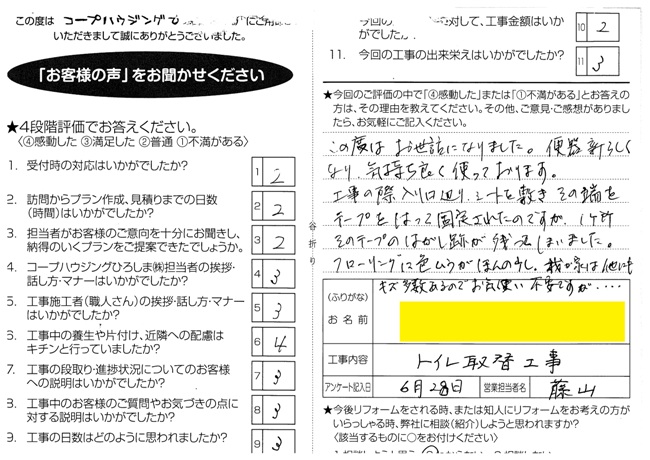 この度は コープハウジングひ
いただきまして誠にありがとうございました。
「お客様の声」をお聞かせください
★4段階評価でお答えください。
〈④感動した ③満足した ②普通 ①不満がある〉
1. 受付時の対応はいかがでしたか?
1 2
2. 訪問からプラン作成、見積りまでの日数
(時間)はいかがでしたか?
2 2
3. 担当者がお客様のご意向を十分にお聞きし、
納得のいくプランをご提案できたでしょうか。
3 2
4. コープハウジングひろしま㈱担当者の挨拶・
話し方・マナーはいかがでしたか?
4 3
5. 工事施工者(職人さん)の挨拶・話し方・マナー
はいかがでしたか?
5 3
6. 工事中の養生や片付け、近隣への配慮は
キチンと行っていましたか?
6 4
7. 工事の段取り・進捗状況についてのお客様
への説明はいかがでしたか?
7 3
8. 工事中のお客様のご質問やお気づきの点に
対する説明はいかがでしたか?
8 3
9. 工事の日数はどのように思われましたか?
9 3
谷折り
対して、工事金額はいか
がでした
10 2
11. 今回の工事の出来栄えはいかがでしたか?
11 3
★今回のご評価の中で「④感動した」または「①不満がある」とお答えの
方は、その理由を教えてください。その他、ご意見・ご感想がありまし
たら、お気軽にご記入ください。
この度は お世話になりました。便器新しく
なり、気持ち良く使っております。
工事の際入り口辺り、シートを敷き その端を
テープをはって固定されたのですが、1ヶ所
そのテープのはがし跡が残ってしまいました。
フローリングに色ムラがほんの少し。我が家は他にも
キズ多数あるのでお気使い不要ですが・・・・
(ふりがな)
お名前
工事内容
トイレ取替工事
アンケート記入日
6月28日
営業担当者名
藤山
★今後リフォームをされる時、または知人にリフォームをお考えの方が
いらっしゃる時、弊社に相談(紹介)しようと思われますか?
〈該当するものに○をお付けください〉